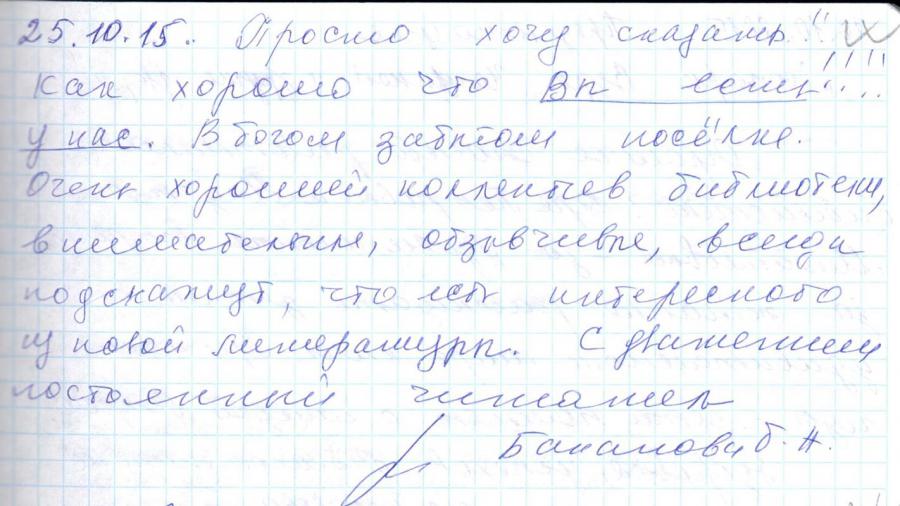 25.10.15. Просто хочу сказать!!
Как хорошо что Вы есть!!!!
у нас. В богом забытом посёлке.
Очень хороший коллектив библиотеки,
внимательные, отзывчивые, всегда
подскажут, что есть интересного
из новой литературы. С уважением
постоянный читатель
Б. Н.